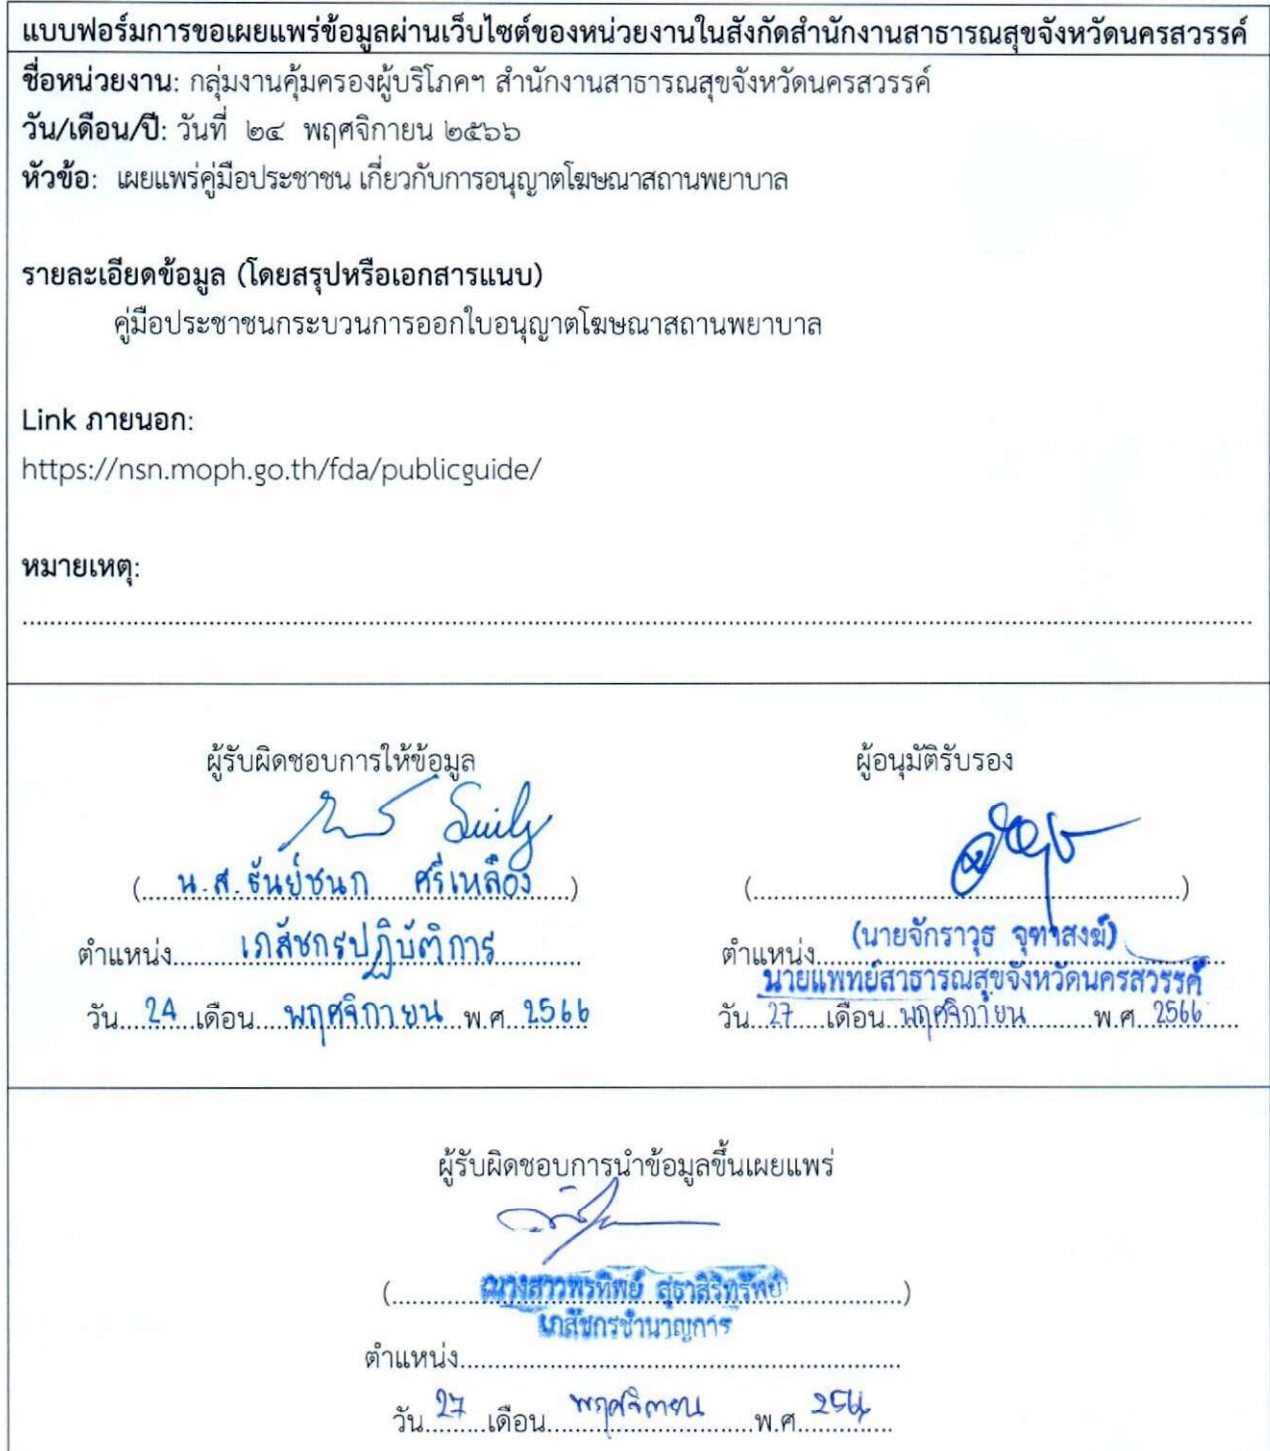 แบบฟอร์มการขอเผยแพร่ข้อมูลผ่านเว็บไซต์ของหน่วยงานในสังกัดสำนักงานสาธารณสุขจังหวัดนครสวรรค์
ชื่อหน่วยงาน: กลุ่มงานคุ้มครองผู้บริโภคฯ สำนักงานสาธารณสุขจังหวัดนครสวรรค์
วัน/เดือน/ปี: วันที่ ๒๔ พฤศจิกายน ๒๕๖๖
หัวข้อ: เผยแพร่คู่มือประชาชน เกี่ยวกับการอนุญาตโฆษณาสถานพยาบาล
รายละเอียดข้อมูล (โดยสรุปหรือเอกสารแนบ)
คู่มือประชาชนกระบวนการออกใบอนุญาตโฆษณาสถานพยาบาล
Link ภายนอก:
https://nsn.moph.go.th/fda/publicguide/
หมายเหตุ:
ผู้รับผิดชอบการให้ข้อมูล
(น.ส.ธันย์ชนก ศรีเหลือง)
ตำแหน่ง เภสัชกรปฏิบัติการ
วัน 24 เดือน พฤศจิกายน พ.ศ. 2566
ผู้อนุมัติรับรอง
(นายจักราวุธ จุฑาสงฆ์)
ตำแหน่ง นายแพทย์สาธารณสุขจังหวัดนครสวรรค์
วัน 27 เดือน พฤศจิกายน พ.ศ. 2566
ผู้รับผิดชอบการนำข้อมูลขึ้นเผยแพร่
(นางสาวพรทิพย์ สุธาสิริทรัพย์)
เภสัชกรชำนาญการ
ตำแหน่ง
วัน 27 เดือน พฤศจิกายน พ.ศ. 2566